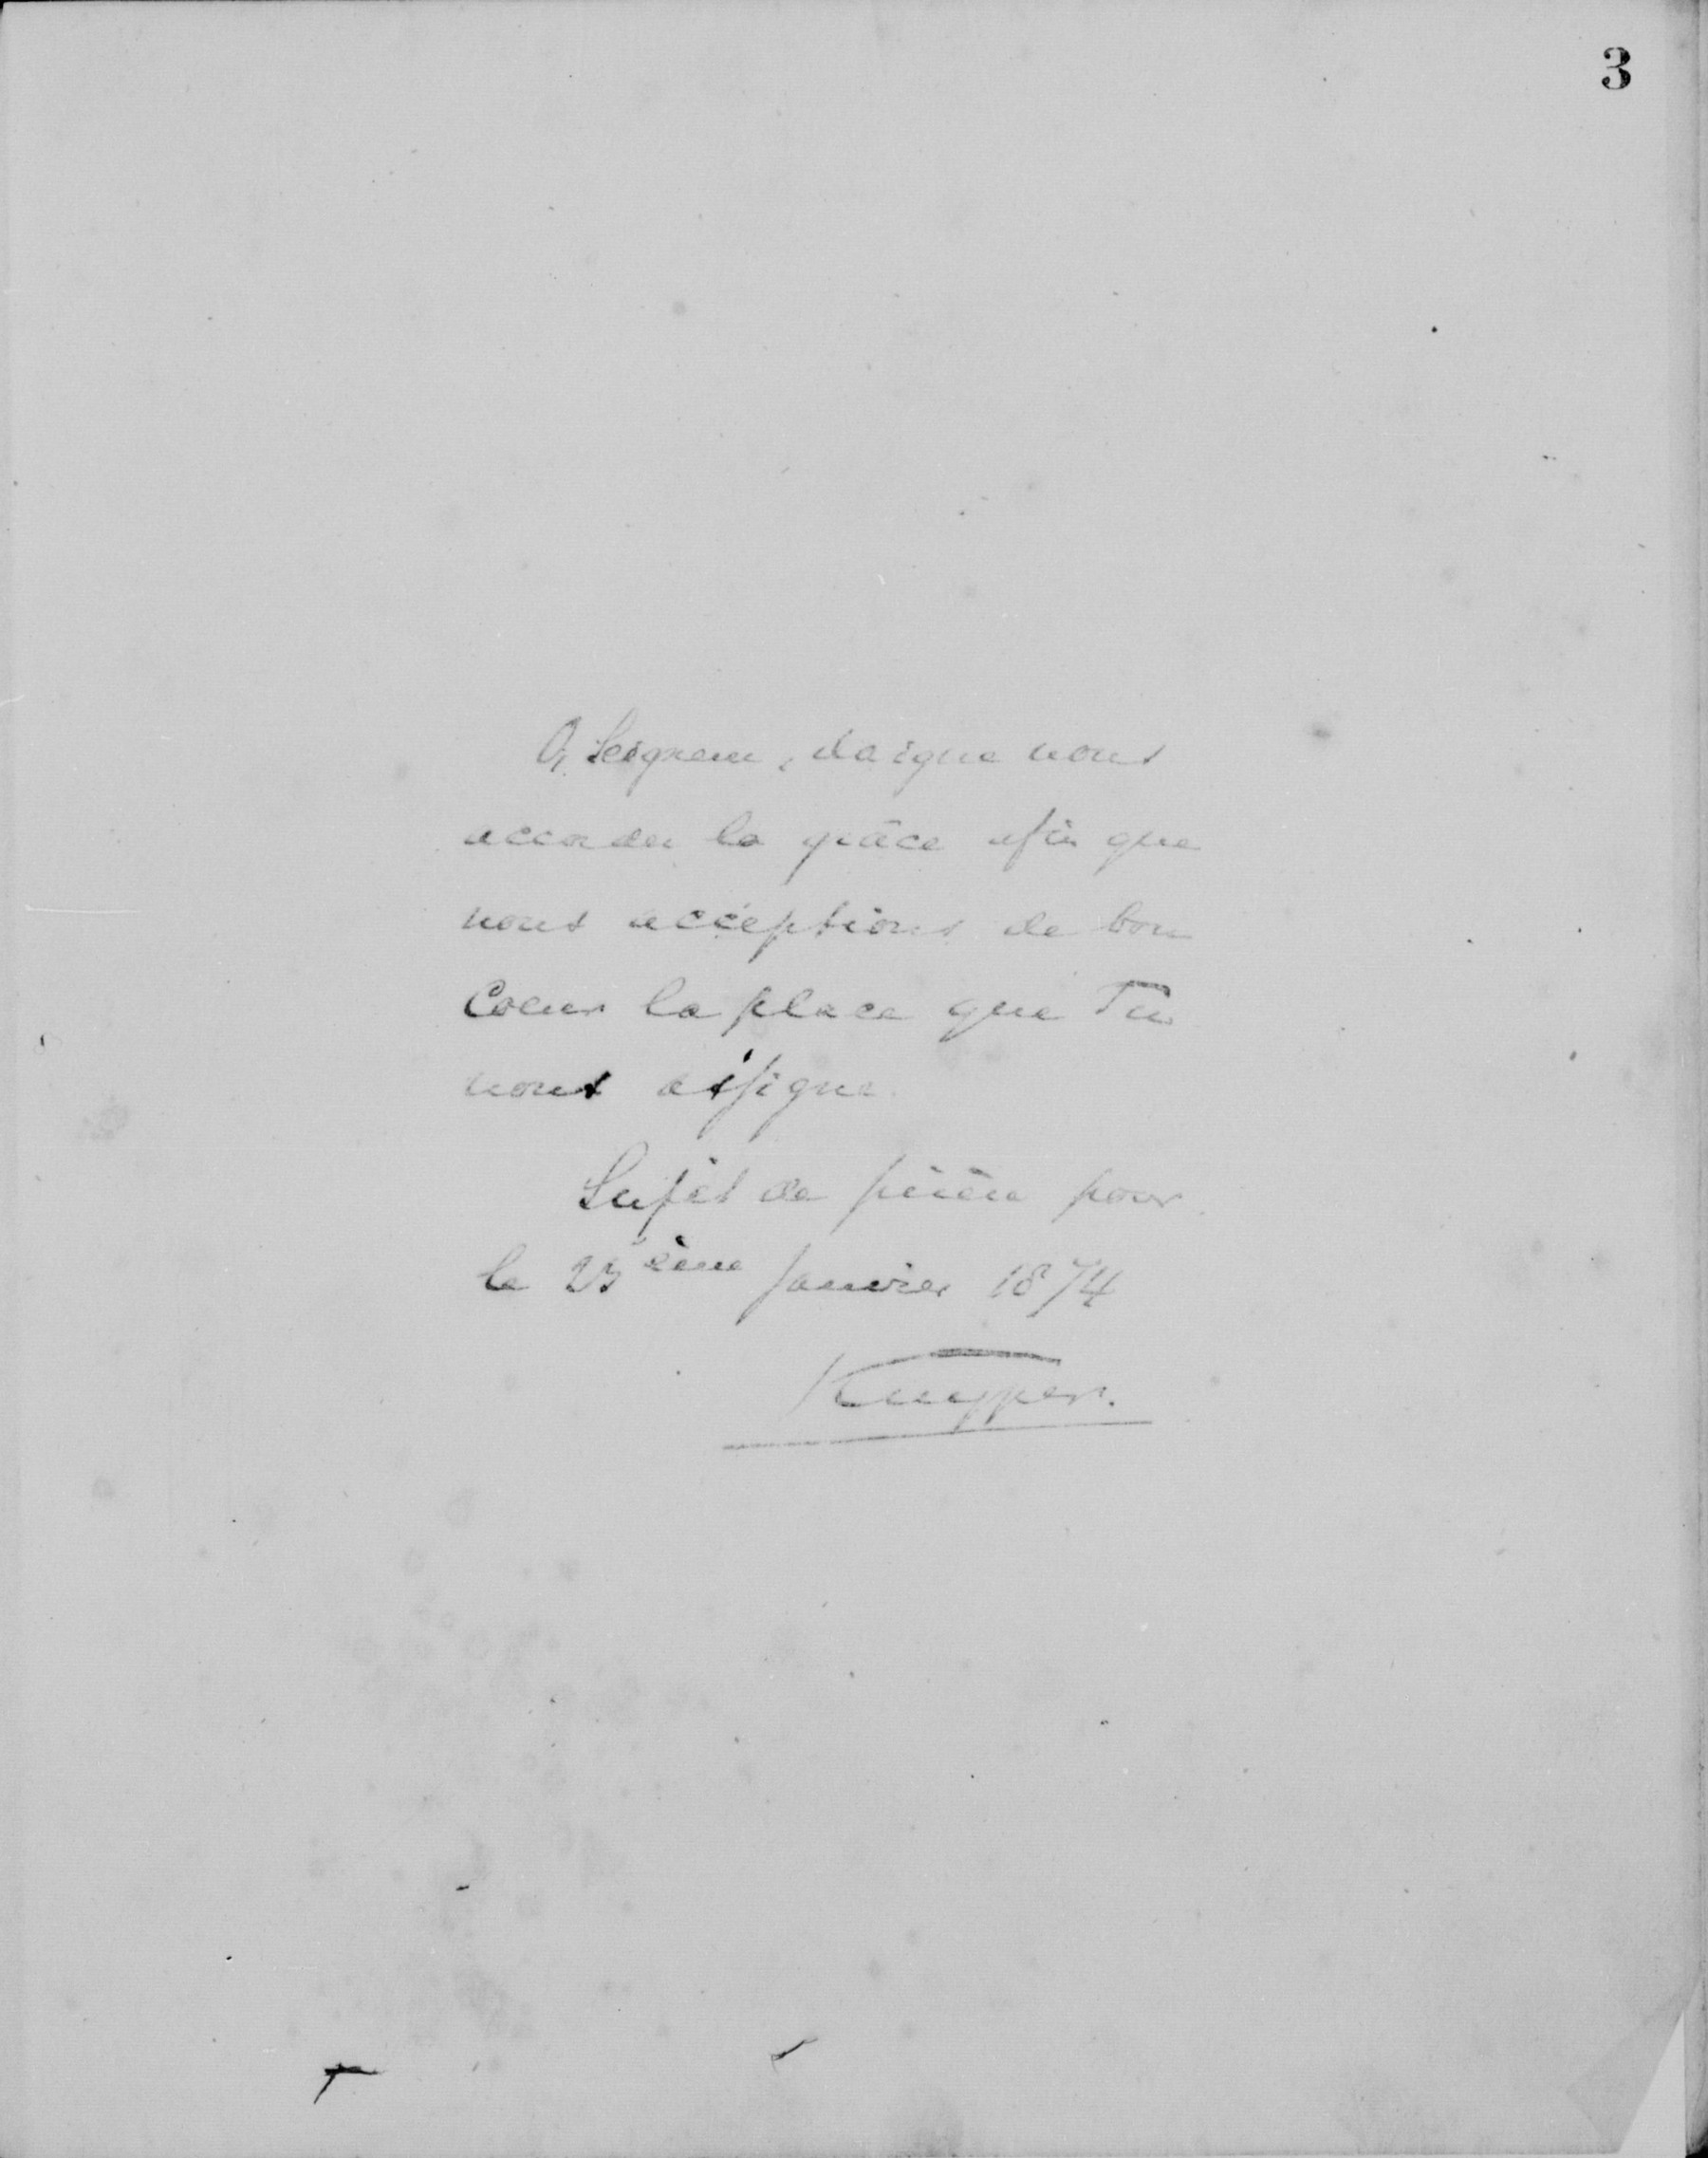 3
O, Seigneur, daigne nous
accorder la grâce afin que
nous acceptions de bon
Coeur la place que Tu
nous assigne.
Sujet de prière pour
le 23ième Janvier 1874
Kuyper.